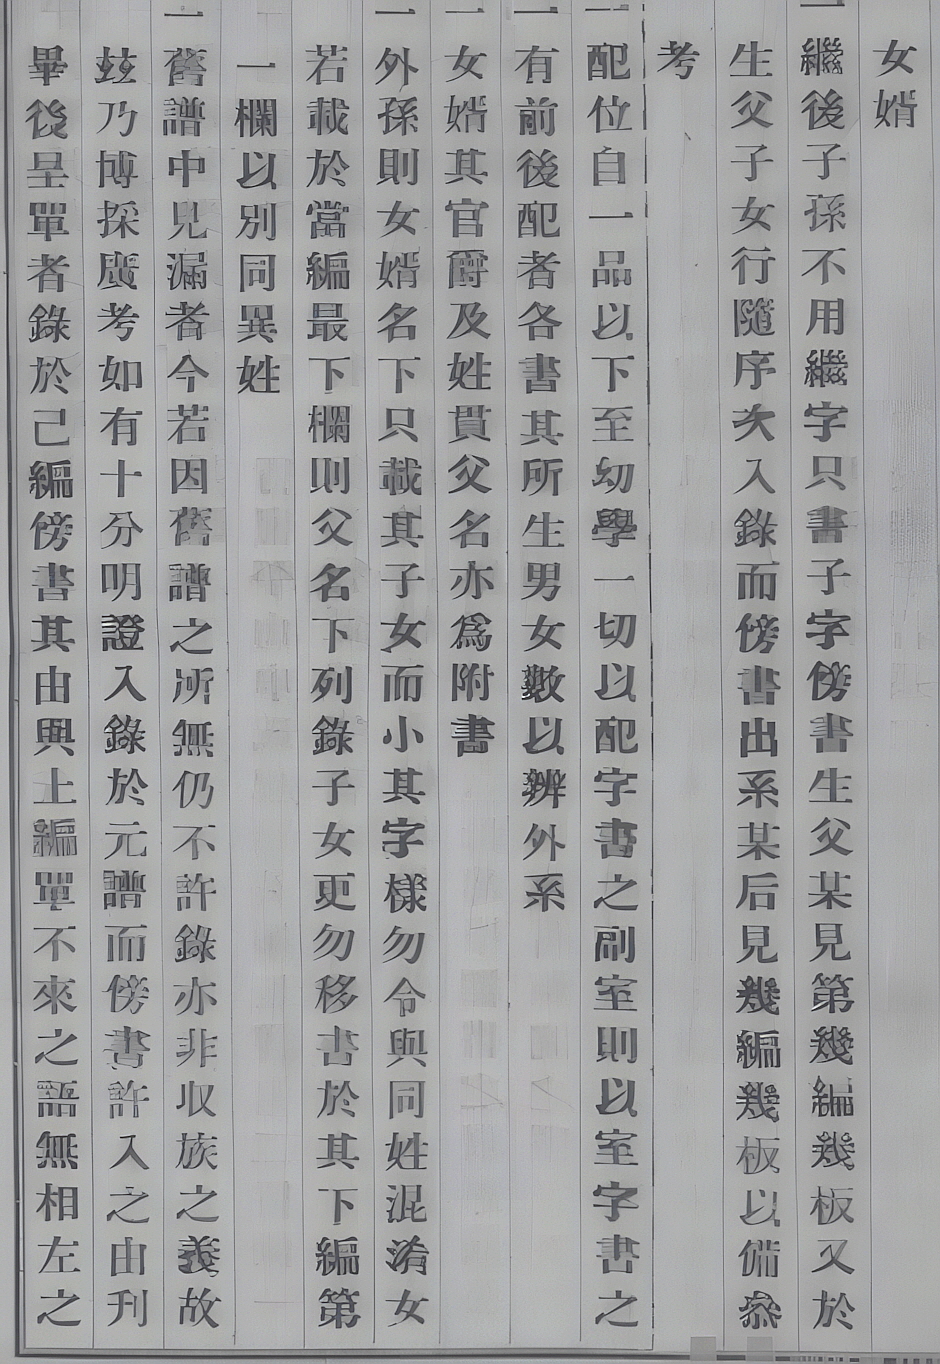 女婿
一繼後子孫不用繼字只書子字傍書生父某見第幾編幾板又於
生父子女行隨序次入錄而傍書出系某后見幾編幾板以備叅
考
一配位自一品以下至幼學一切以配字書之副室則以室字書之
一有前後配者各書其所生男女數以辨外系
一女婿其官爵及姓貫父名亦爲附書
一外孫則女婿名下只載其子女而小其字樣勿令與同姓混淆女
若載於當編最下欄則父名下列錄子女更勿移書於其下編第
一欄以別同異姓
一舊譜中見漏者今若因舊譜之所無仍不許錄亦非収族之義故
玆乃博採廣考如有十分明證入錄於元譜而傍書許入之由刋
畢後呈單者錄於己編傍書其由與上編單不來之語無相左之